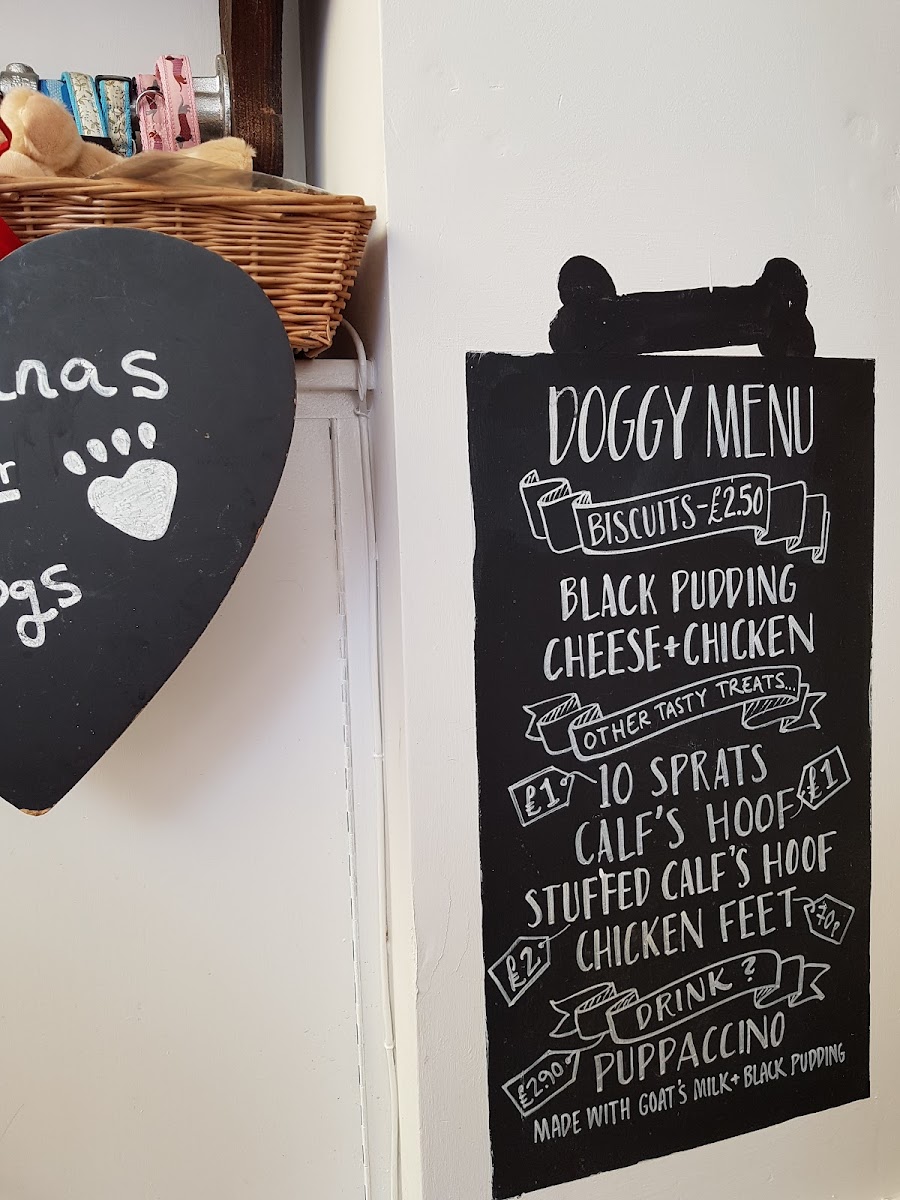 nas
r
ogs
DOGGY MENU
BISCUITS-£2.50
BLACK PUDDING
CHEESE+CHICKEN
OTHER TASTY TREATS...
£1 10 SPRATS
CALF'S HOOF £1
STUFFED CALF'S HOOF
£2 CHICKEN FEET 70p
DRINK?
£2.90 PUPPACCINO
MADE WITH GOAT'S MILK+BLACK PUDDING